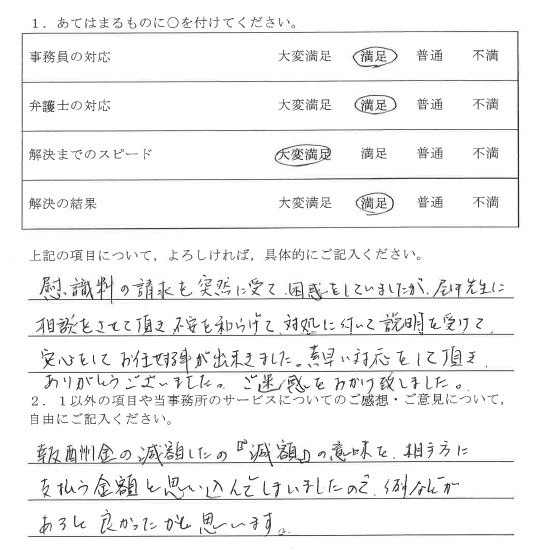 1．あてはまるものに○を付けてください。
事務員の対応 大変満足 満足 普通 不満
弁護士の対応 大変満足 満足 普通 不満
解決までのスピード 大変満足 満足 普通 不満
解決の結果 大変満足 満足 普通 不満
上記の項目について，よろしければ，具体的にご記入ください。
慰識料の請求を突然に受て、困惑をしていましたが、先生に
相談をさせて頂き不安を和らげて、対処に付いて説明を受けて、
安心をしてお任せする事が出来きました。素早い対応をして頂き、
ありがとうございました。ご迷惑をおかけ致しました。
2．1以外の項目や当事務所のサービスについてのご感想・ご意見について，
自由にご記入ください。
報酬金の減額したの『減額』の意味を、相手方に
支払う金額と思い込んでしまいましたので、例などが
あると良かったかと思います。